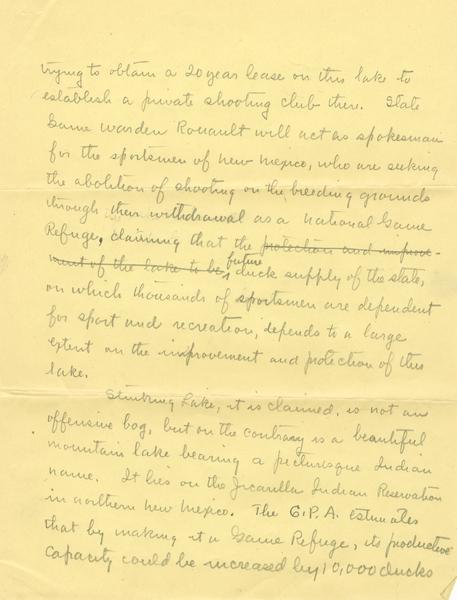 trying to obtain a 20 year lease on this lake to
establish a private shooting club there. State
Game Warden Rouault will act as spokesman
for the sportsmen of New Mexico, who are seeking
the abolition of shooting on the breeding grounds
through their withdrawal as a National Game
Refuge, claiming that the protection and improve-
ment of the lake to be future duck supply of the state,
on which thousands of sportsmen are dependent
for sport and recreation, depends to a large
extent on the improvement and protection of this
lake.
Stinking Lake, it is claimed, is not an
offensive bog, but on the contrary is a beautiful
mountain lake bearing a picturisque Indian
name. It lies on the Jicarilla Indian Reservation
in northern New Mexico. The G.P.A. estimates
that by making it a Game Refuge, its productive
capacity could be increased by 10,000 ducks